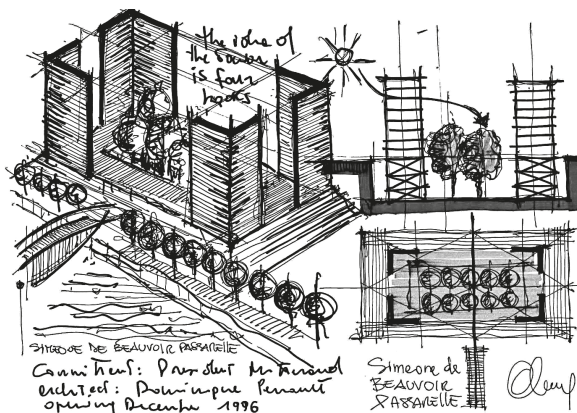 the
of
the
is four
books
SIMEONE DE BEAUVOIR PASSARELLE
Commitent: President Mitterand
architect: Dominique Perrault
opening Decembe 1996
Simeone de
BEAUVOIR
PASSARELLE